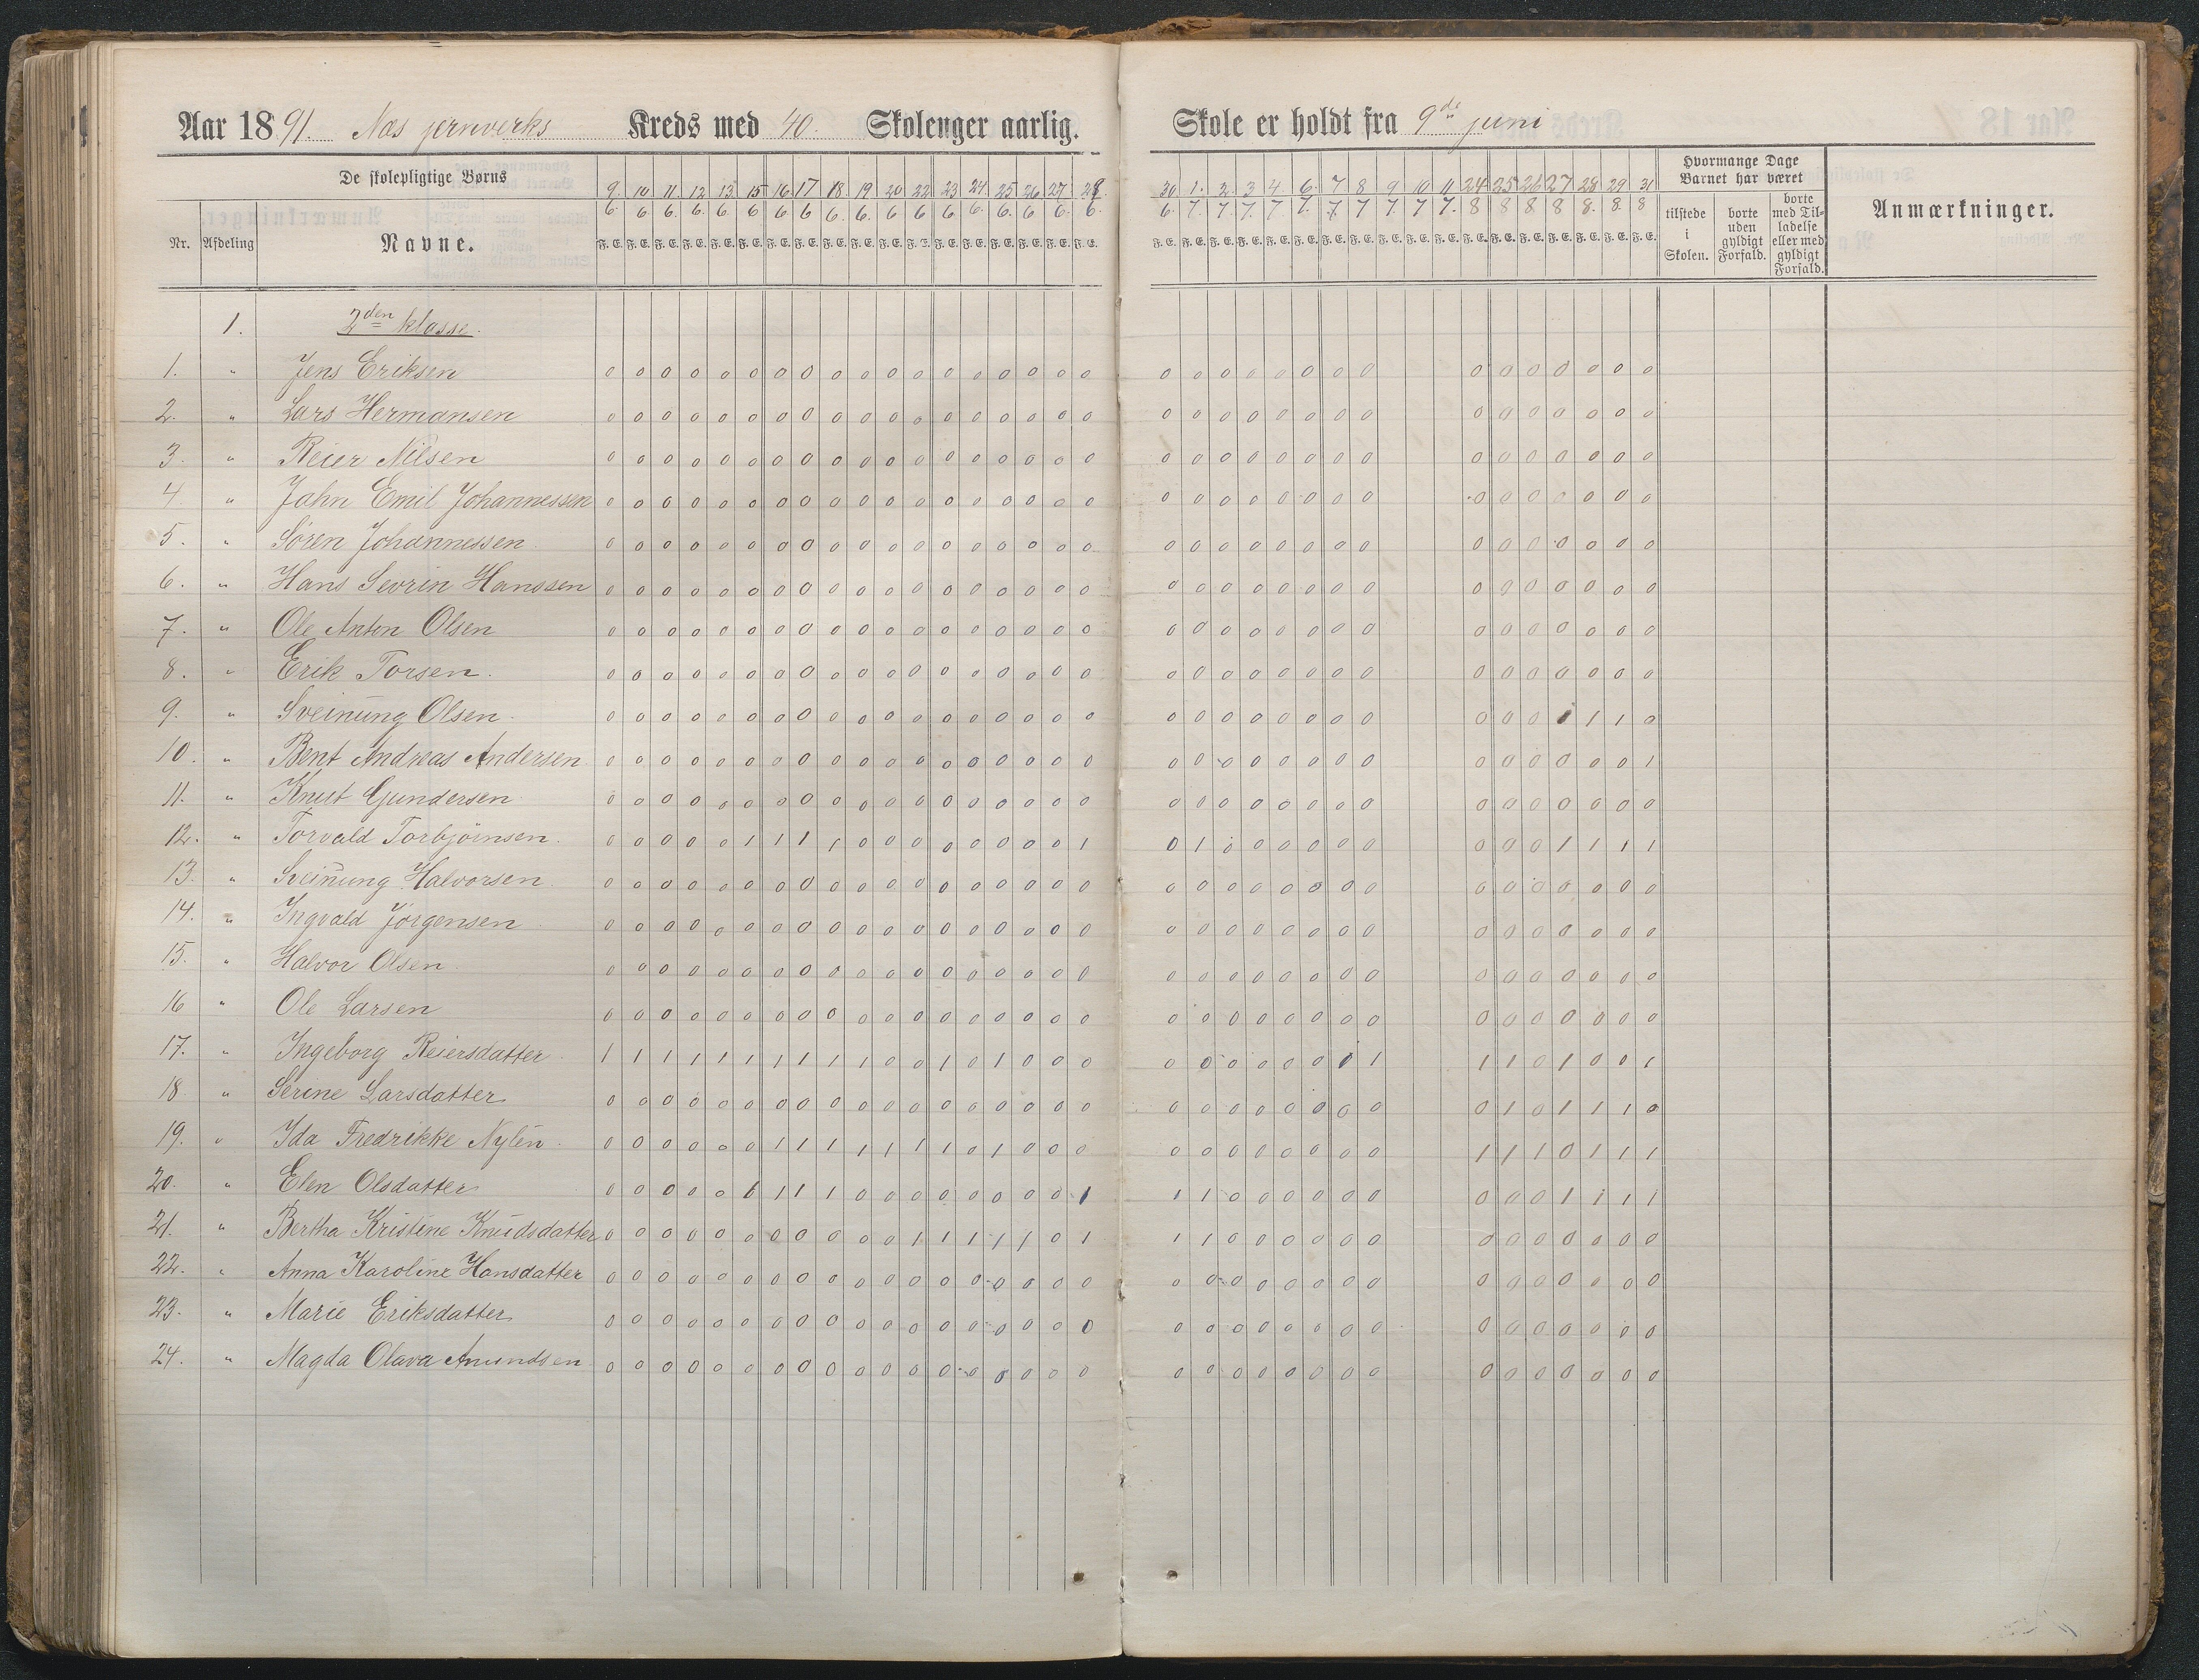 Aar 1891. Nes jernverks Kreds med 40. Skolenger aarlig. Skole er holdt fra 9de juni
De skolepligtige Børns
Nr. Afdeling Navne.
9. 10 11. 12 13 15 16 17 18. 19 20 22 23 24 25 26 27
6. 6 6. 6. 6. 6 6 6 6. 6. 6 6 6 6. 6. 6 6. 6.
30 1. 2. 3 4 6. 7. 8 9 10 11 24 25 26 27 28 29 31
6. 7. 7. 7. 7 7. 7. 7 7. 7 7. 8 8 8 8 8. 8. 8
Hvormange Dage Barnet har været
tilstede i Skolen.
borte uden gyldigt Forfald.
borte med Tilladelse eller med gyldigt Forfald.
Anmærkninger.
1. 2den klasse.
1. " Jens Eriksen 0 0 0 0 0 0 0 0 0 0 0 0 0 0 0 0 0 0 0 0 0 0 0 0 0 0 0 0 0 0 0 0 0
2. " Lars Hermansen 0 0 0 0 0 0 0 0 0 0 0 0 0 0 0 0 0 0 0 0 0 0 0 0 0 0 0 0 0 0 0 0 0
3. " Reier Nilsen 0 0 0 0 0 0 0 0 0 0 0 0 0 0 0 0 0 0 0 0 0 0 0 0 0 0 0 0 0 0 0 0 0
4 " Jahn Emil Johannessen 0 0 0 0 0 0 0 0 0 0 0 0 0 0 0 0 0 0 0 0 0 0 0 0 0 0 0 0 0 0 0 0 0
5. " Søren Johannessen 0 0 0 0 0 0 0 0 0 0 0 0 0 0 0 0 0 0 0 0 0 0 0 0 0 0 0 0 0 0 0 0 0
6. " Hans Sevrin Hanssen 0 0 0 0 0 0 0 0 0 0 0 0 0 0 0 0 0 0 0 0 0 0 0 0 0 0 0 0 0 0 0 0 0
7. " Ole Anton Olsen 0 0 0 0 0 0 0 0 0 0 0 0 0 0 0 0 0 0 0 0 0 0 0 0 0 0 0 0 0 0 0 0 0
8. " Erik Torsen. 0 0 0 0 0 0 0 0 0 0 0 0 0 0 0 0 0 0 0 0 0 0 0 0 0 0 0 0 0 0 0 0 0
9. " Sveinung Olsen. 0 0 0 0 0 0 0 0 0 0 0 0 0 0 0 0 0 0 0 0 0 0 0 0 0 0 0 0 0 1 1 1 0
10. " Bent Andreas Andersen 0 0 0 0 0 0 0 0 0 0 0 0 0 0 0 0 0 0 0 0 0 0 0 0 0 0 0 0 0 0 0 0 1
11. " Knut Gundersen 0 0 0 0 0 0 0 0 0 0 0 0 0 0 0 0 0 0 0 0 0 0 0 0 0 0 0 0 0 0 0 0 0
12. " Torvald Torbjörnsen. 0 0 0 0 0 1 1 1 1 0 0 0 0 0 0 0 0 1 0 1 0 0 0 0 0 0 0 0 0 1 1 1 1
13. " Sveinung Halvorsen 0 0 0 0 0 0 0 0 0 0 0 0 0 0 0 0 0 0 0 0 0 0 0 0 0 0 0 0 0 0 0 0 0
14. " Ingvald Jörgensen 0 0 0 0 0 0 0 0 0 0 0 0 0 0 0 0 0 0 0 0 0 0 0 0 0 0 0 0 0 0 0 0 0
15. " Halvor Olsen 0 0 0 0 0 0 0 0 0 0 0 0 0 0 0 0 0 0 0 0 0 0 0 0 0 0 0 0 0 0 0 0 0
16 " Ole Larsen 0 0 0 0 0 0 0 0 0 0 0 0 0 0 0 0 0 0 0 0 0 0 0 0 0 0 0 0 0 0 0 0 0
17. " Ingeborg Reiersdatter 1 1 1 1 1 1 1 1 1 1 0 0 1 0 1 0 0 0 0 0 0 0 0 0 0 1 1 1 0 1 0 0 1
18 " Serine Larsdatter 0 0 0 0 0 0 0 0 0 0 0 0 0 0 0 0 0 0 0 0 0 0 0 0 0 0 0 1 0 1 1 1 0
19. " Ida Fredrikke Nylén 0 0 0 0 0 0 1 1 1 1 1 1 1 0 1 0 0 0 0 0 0 0 0 0 0 0 1 1 1 0 1 1 1
20. " Elen Olsdatter 0 0 0 0 0 1 1 1 1 0 0 0 0 0 0 0 0 1 1 1 0 0 0 0 0 0 0 0 0 1 1 1 1
21. " Bertha Kristine Knudsdatter 0 0 0 0 0 0 0 0 0 0 0 1 1 1 1 1 0 1 1 1 0 0 0 0 0 0 0 0 0 0 0 0 0
22. " Anna Karoline Hansdatter 0 0 0 0 0 0 0 0 0 0 0 0 0 0 0 0 0 0 0 0 0 0 0 0 0 0 0 0 0 0 0 0 0
23. " Marie Eriksdatter 0 0 0 0 0 0 0 0 0 0 0 0 0 0 0 0 0 0 0 0 0 0 0 0 0 0 0 0 0 0 0 0 0
24. " Magda Olava Amundsen 0 0 0 0 0 0 0 0 0 0 0 0 0 0 0 0 0 0 0 0 0 0 0 0 0 0 0 0 0 0 0 0 0